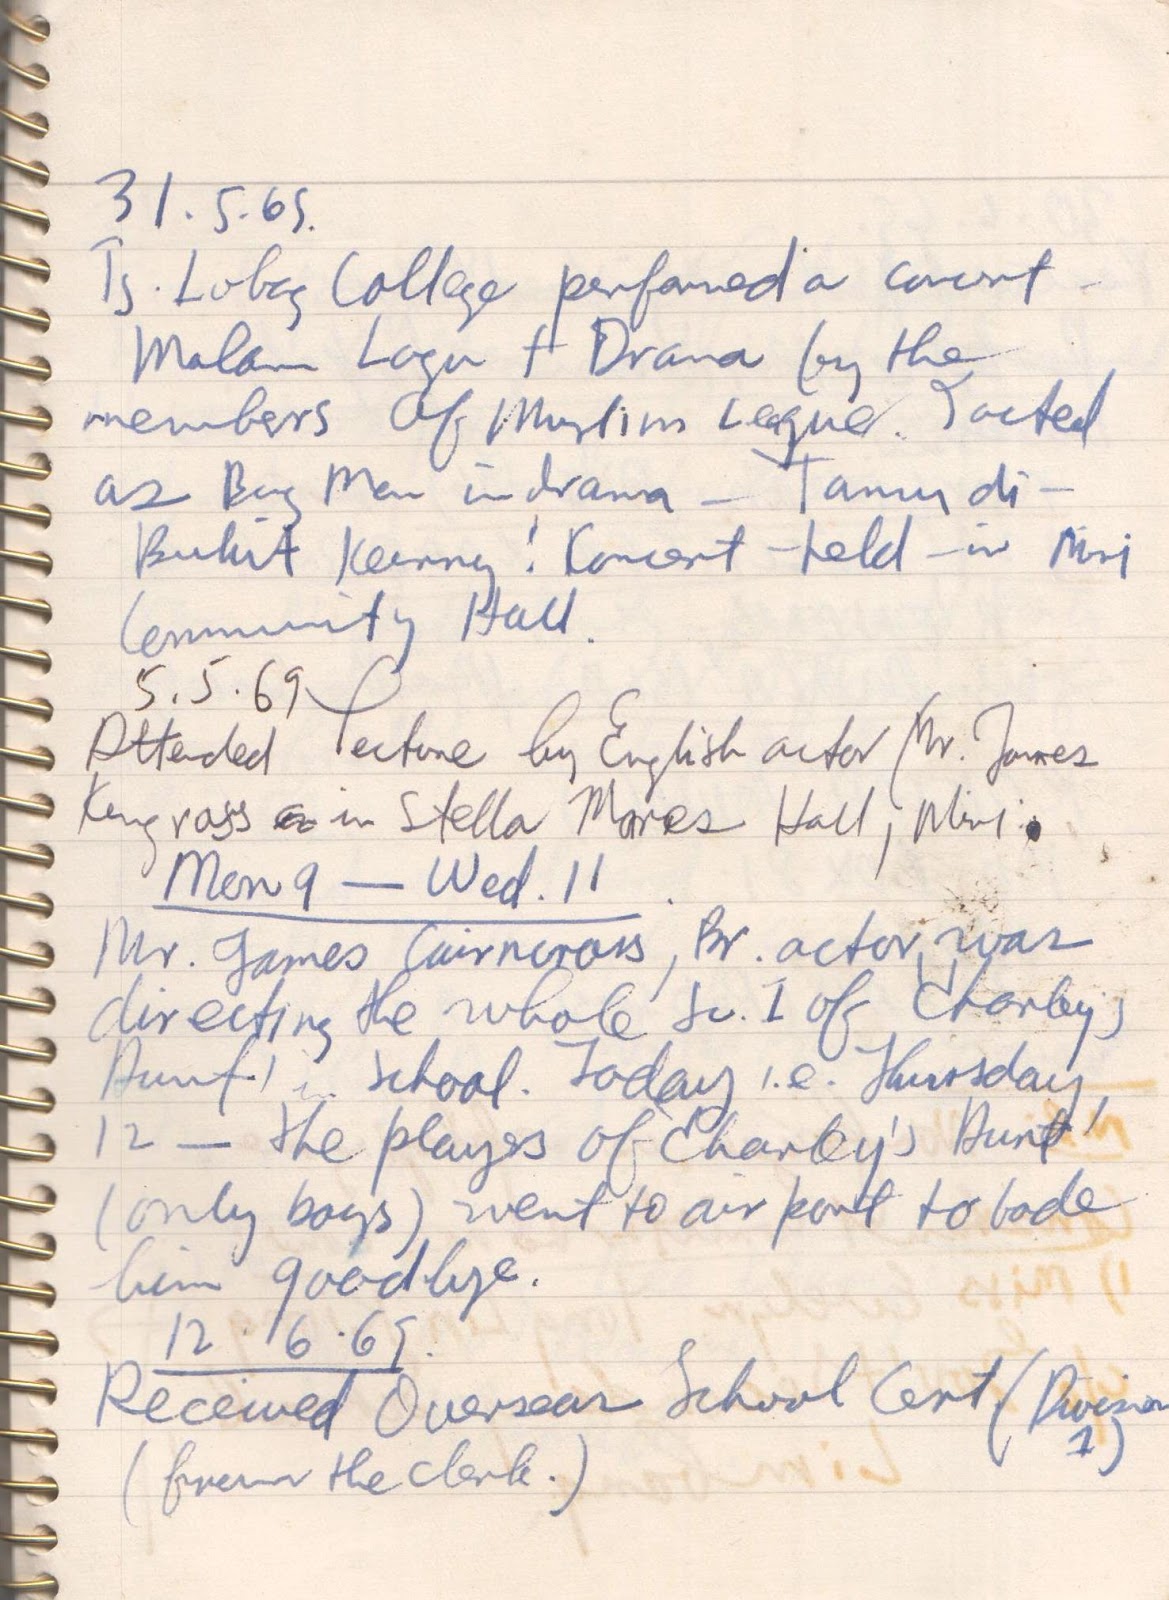 31.5.69.
Tg. Lobag College performed a concert -
Malam Lagu + Drama by the
members of Muslim League. I acted
as Big Man in drama - Tamu di-
Bukit Kenny! Koncert held in Miri
Community Hall.
5.5.69
Attended lecture by English actor Mr. James
Kengross in Stella Mores Hall, Miri.
Mon 9 — Wed. 11
Mr. James Cairncross, Br. actor, was
directing the whole Sc. 1 of 'Charley's
Aunt' in school. Today i.e. Thursday,
12 — the players of 'Charley's Aunt'
(only boys) went to airport to bade
him goodbye.
12.6.69.
Received Overseas School Cert (Division
1)
(from the clerk.)